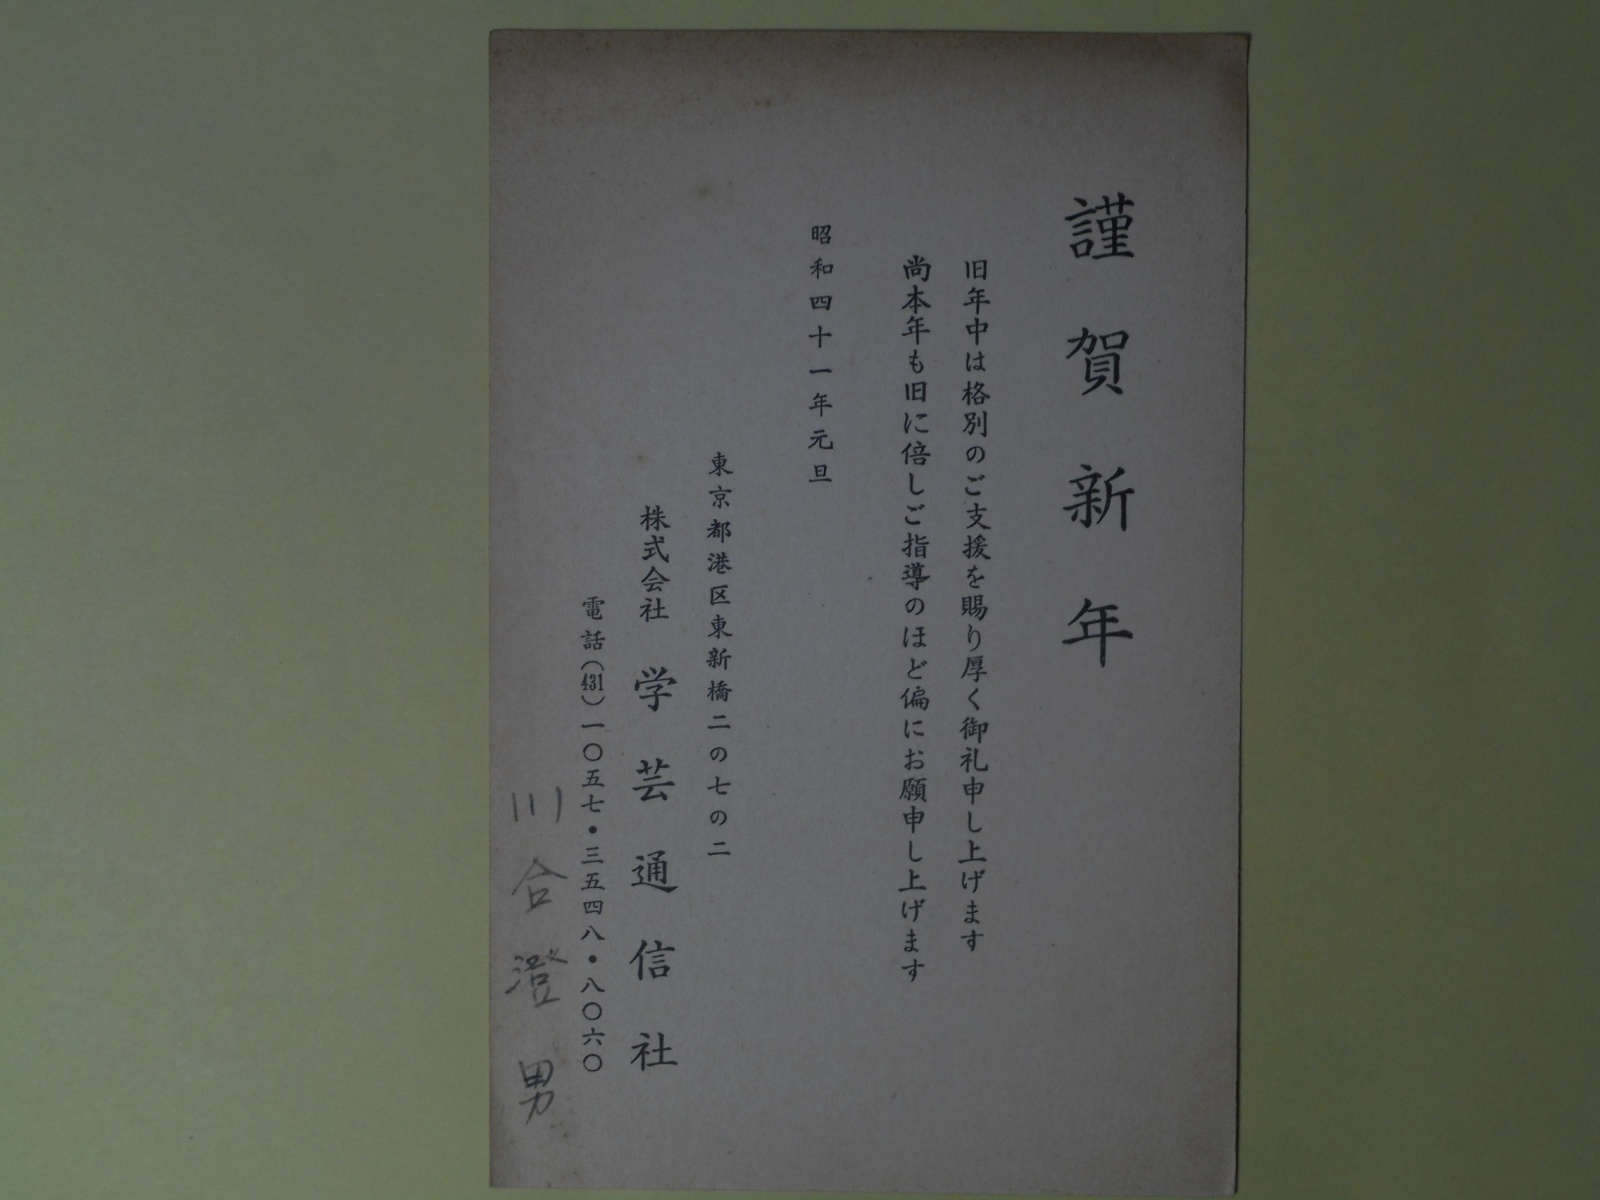 謹賀新年
旧年中は格別のご支援を賜り厚く御礼申し上げます
尚本年も旧に倍しご指導のほど偏にお願申し上げます
昭和四十一年元旦
東京都港区東新橋二の七の二
株式会社 学芸通信社
電話(431)一〇五七・三五四八・八〇六〇
川合澄男